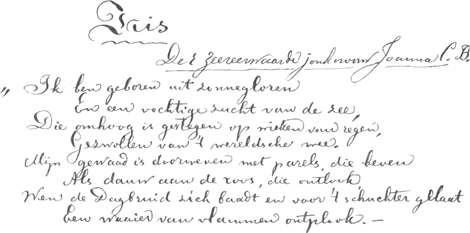 Iris
Der zeereerwaarde jonkvrouw Joanna C. B.
„ Ik ben geboren uit zonnegloren
En een vochtige zucht van de zee,
Die omhoog is gestegen op wieken van regen,
Gezwollen van 't wereldsche wee.
Mijn gewaad is doorweven met parels, die beven
Als dauw aan de roos, die ontlook
Wen de Dagbruid zich baadt en voor 't schuchter gelaat
Een waaier van vlammen ontplook. —